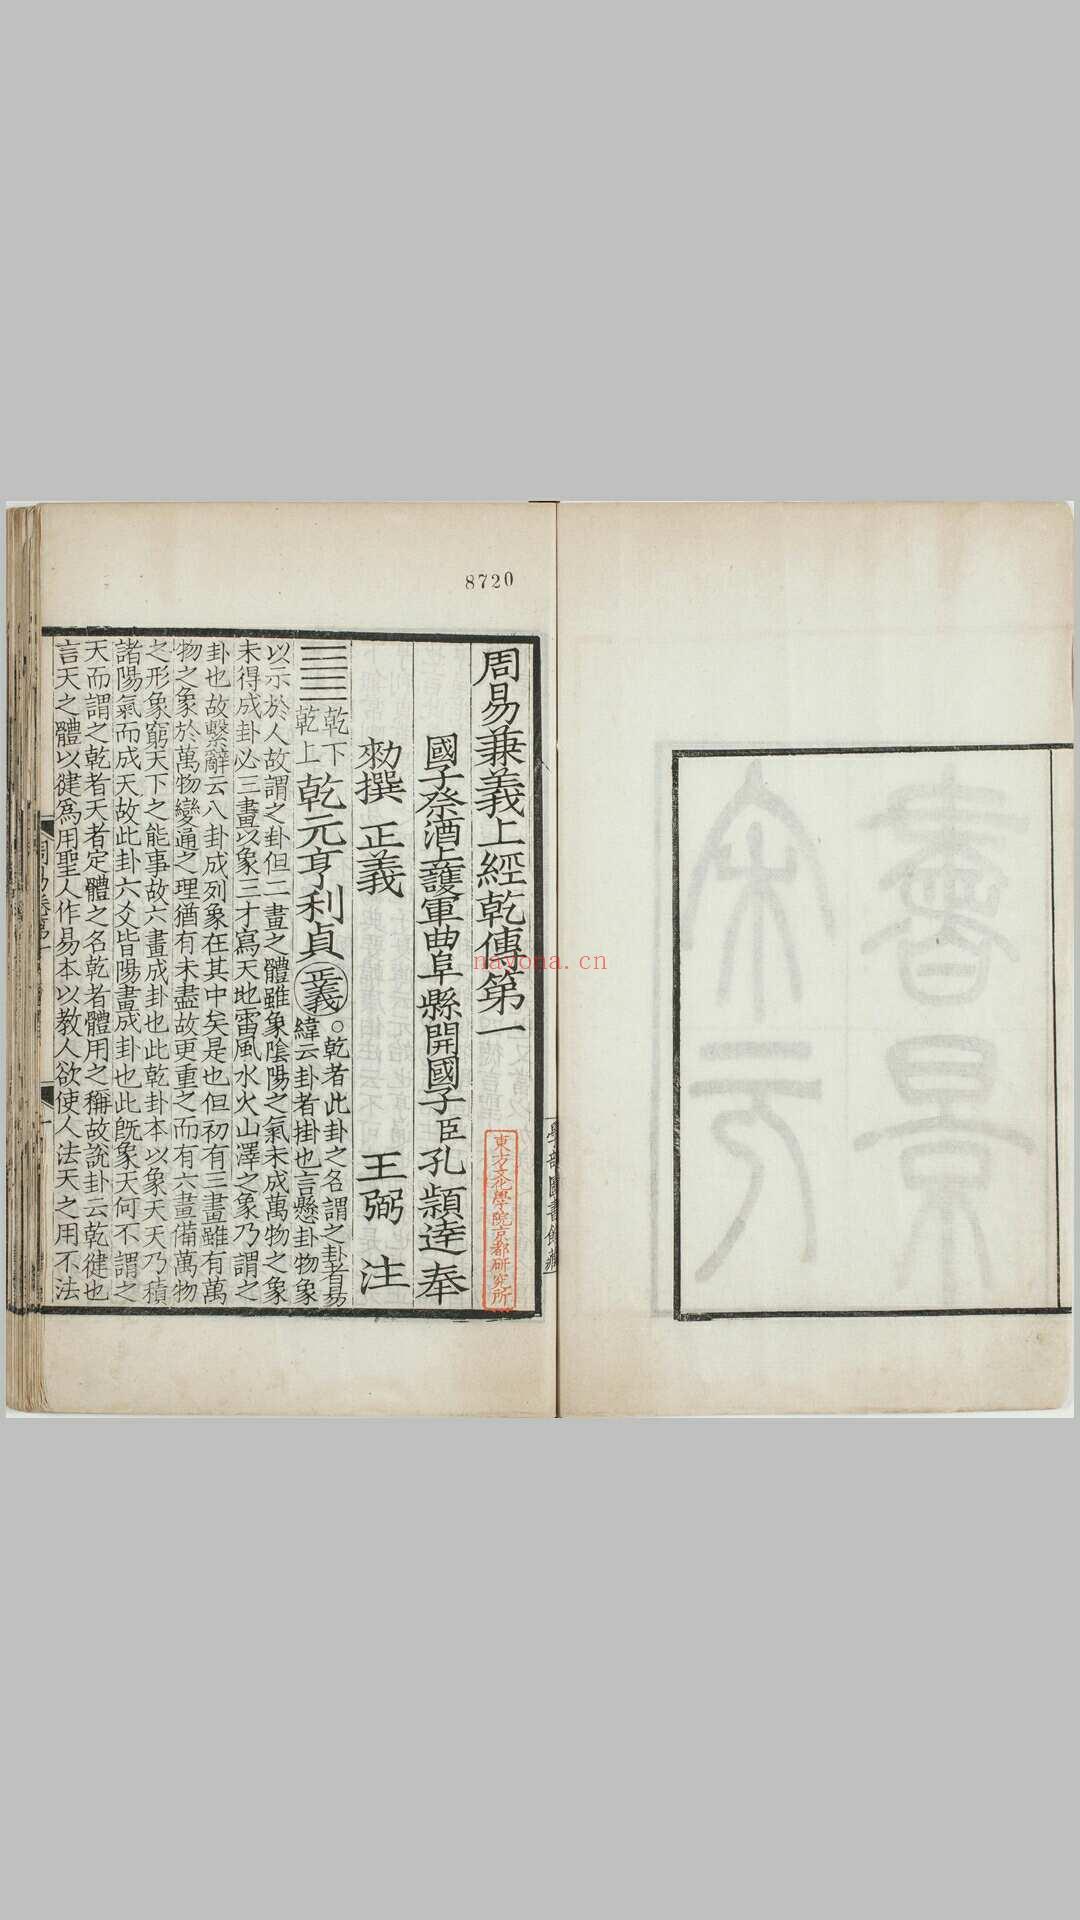 8720
周易兼義上經乾傳第一
國子祭酒上護軍曲阜縣開國子臣孔頴達奉
勑撰 正義 王弼 注
乾下
乾上
乾元亨利貞
正義
○乾者此卦之名謂之卦者易
緯云卦者掛也言懸卦物象
以示於人故謂之卦但二畫之體雖象陰陽之氣未成萬物之象
未得成卦必三畫以象三才寫天地雷風水火山澤之象乃謂之
卦也故繫辭云八卦成列象在其中矣是也但初有三畫雖有萬
物之象於萬物變通之理猶有未盡故更重之而有六畫備萬物
之形象窮天下之能事故六畫成卦也此乾卦本以象天天乃積
諸陽氣而成天故此卦六爻皆陽畫成卦也此既象天何不謂之
天而謂之乾者天者定體之名乾者體用之稱故說卦云乾健也
言天之體以健爲用聖人作易本以教人欲使人法天之用不法
東方文化學院京都研究所
nayona.cn